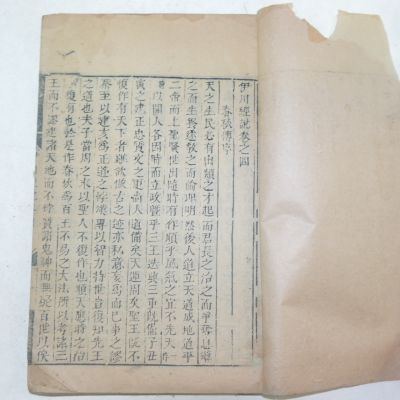 伊川經說卷之四
春秋傳序
天之生民必有出類之才起而君長之治之而爭奪息導
之而生養遂教之而倫理明然後人道立天道成地道平
二帝而上聖賢世出隨時有作順乎風氣之宜不先天
以開人各因時而立政暨乎三王迭興三重既備子丑
寅之建正忠質文之更尚人道備矣天運周矣聖王既不
復作有天下者雖欲倣古之迹亦私意妄為而已事之謬
秦至以建亥為正道之悖漢專以智力持世豈復知先王
之道也夫子當周之末以聖人不復作也順天應時之治
不復有也於是作春秋為百王不易之大法所以考諸三
王而不謬建諸天地而不悖質諸鬼神而無疑百世以俟